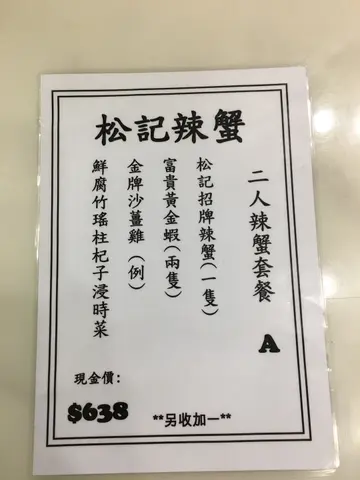 松記辣蟹
二人辣蟹套餐 A
松記招牌辣蟹(一隻)
富貴黃金蝦(兩隻)
金牌沙薑雞(例)
鮮腐竹瑤柱杞子浸時菜
現金價：
$638
**另收加一**